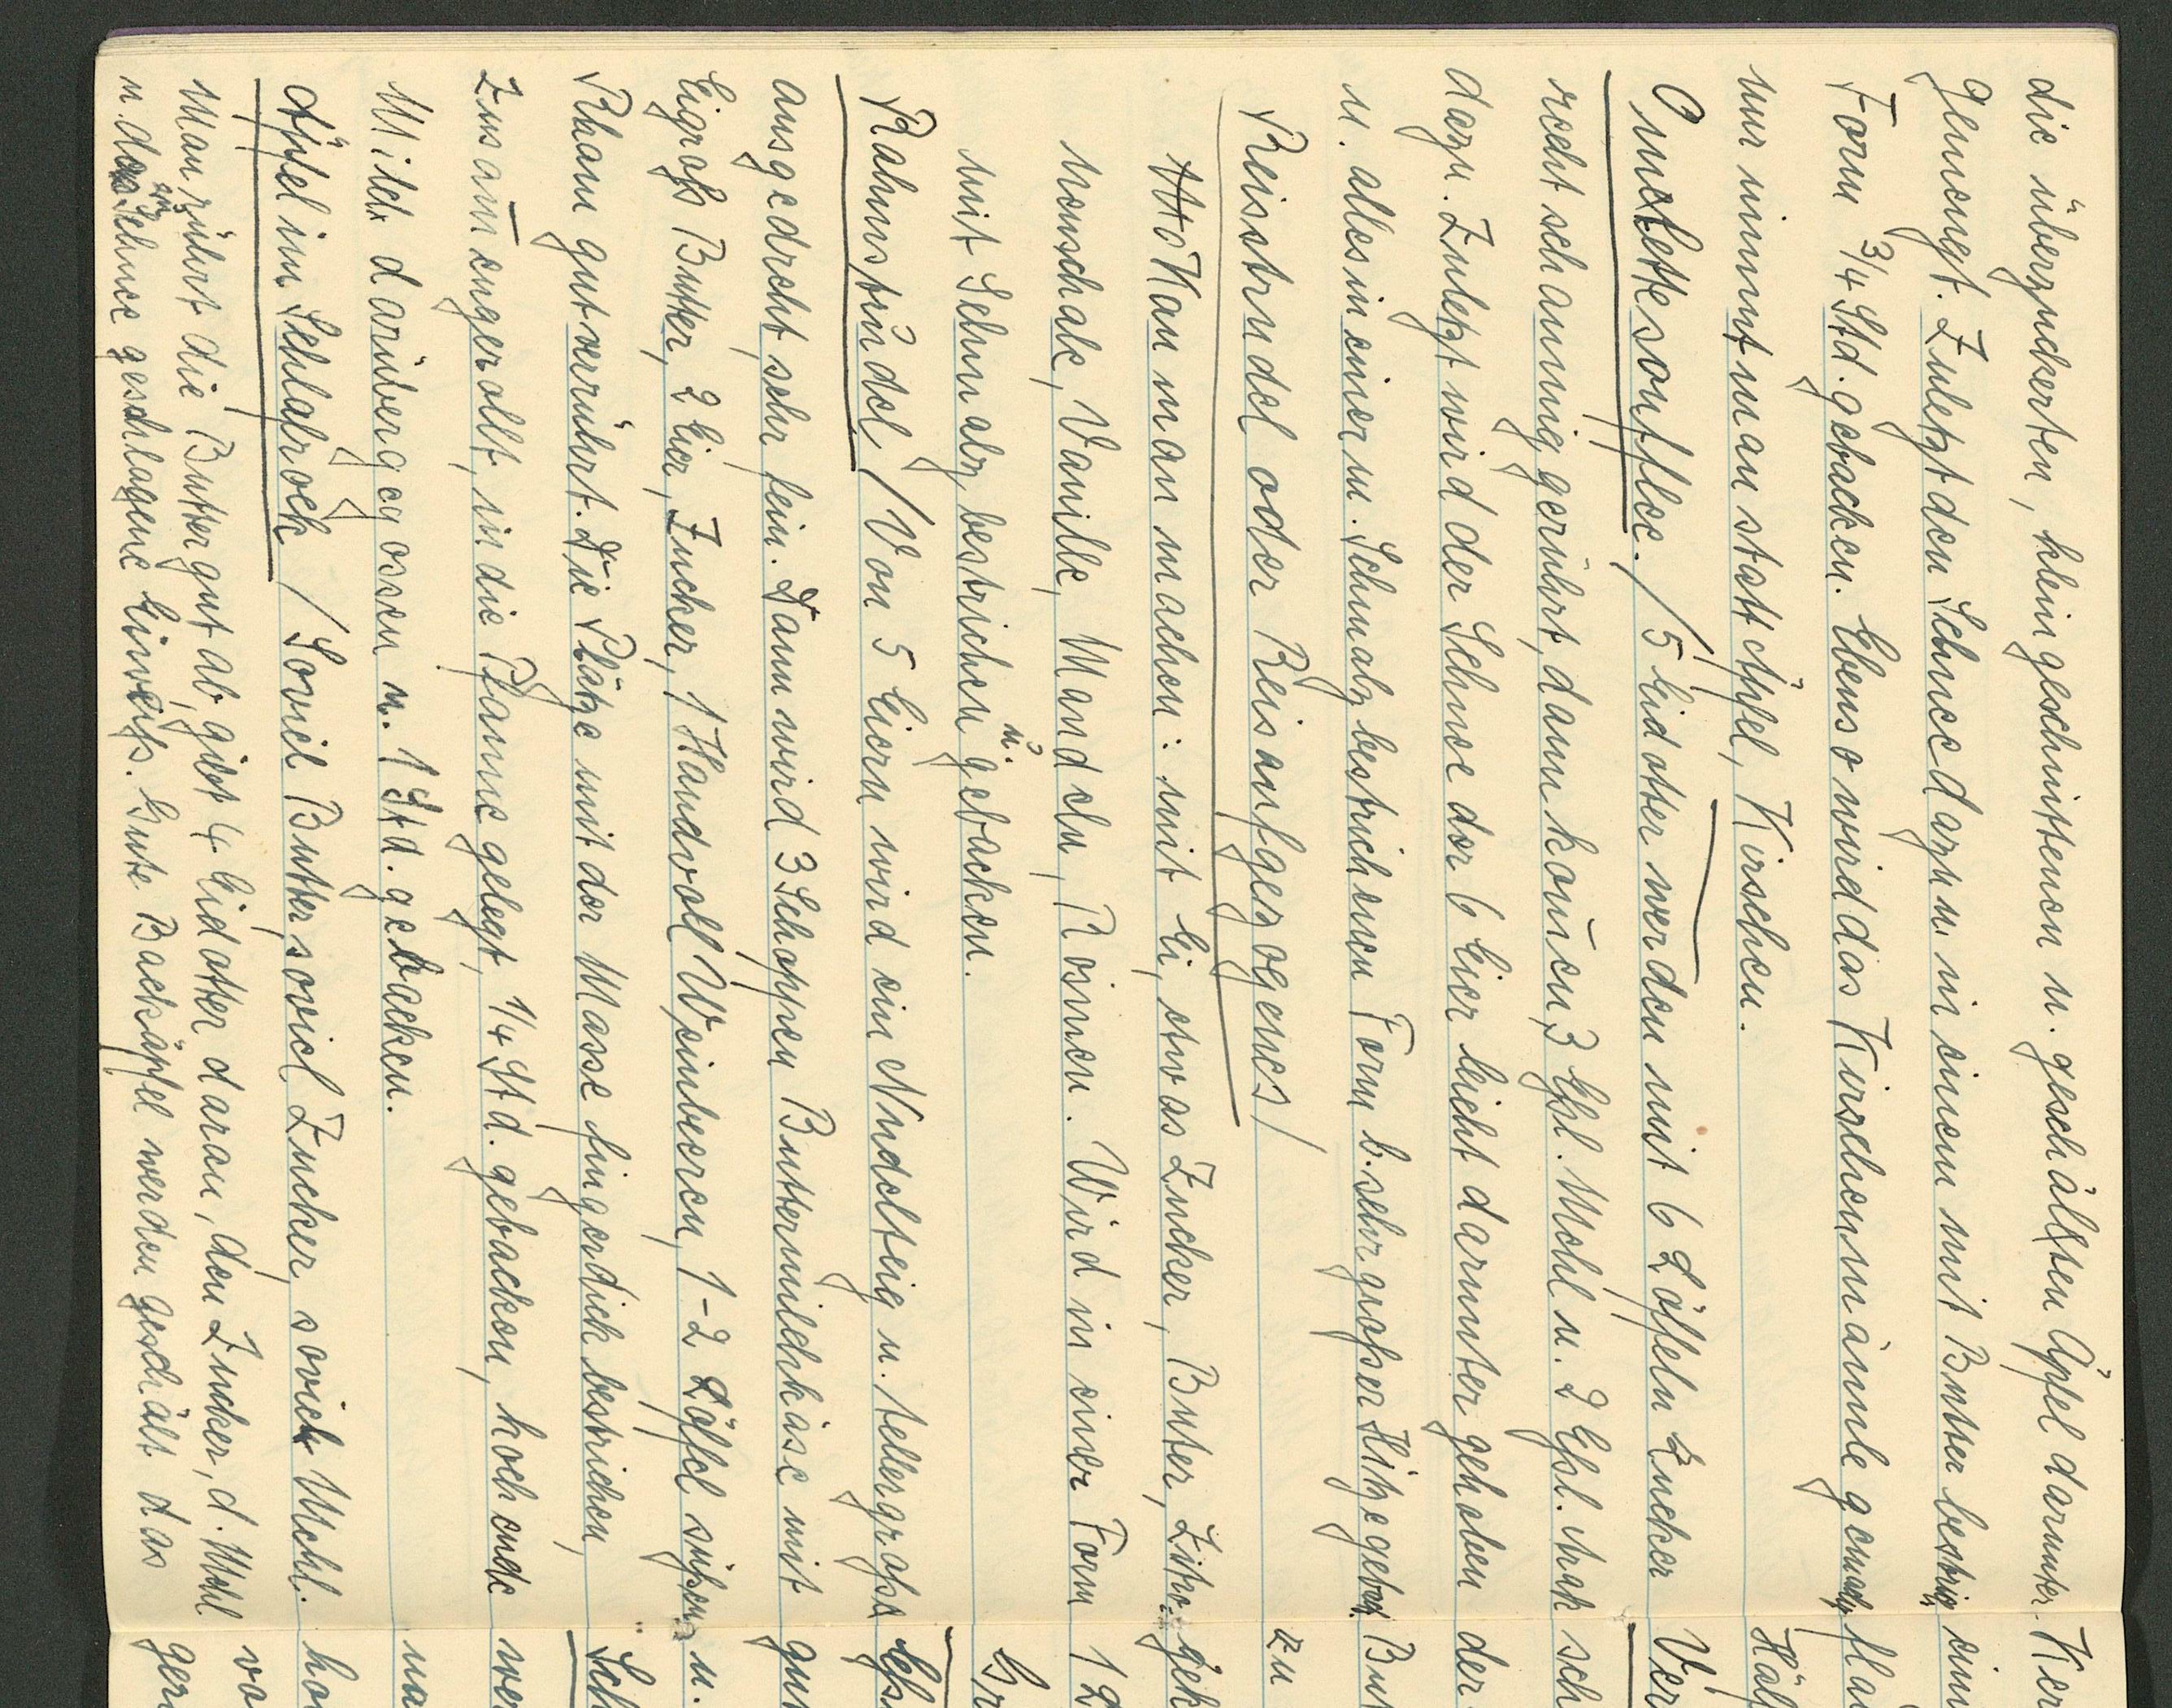 die überzuckerten, klein geschnittenen u. geschälten Äpfel darunter
gemengt. Zuletzt den Schnee dazu u. in einem mit Butter bestrig
Form 3/4 Std. gebacken. Ebenso wird das Kirschenmännle gemacht,
nur nimmt man statt Äpfel, Kirschen.
Omelettesoufflee. / 5 Eidotter werden mit 6 Löffeln Zucker
recht schaumig gerührt, dann kom̄en 3 Eßl. Mehl u. 2 Eßl. Arak
dazu. Zuletzt wird der Schnee der 6 Eier leicht darunter gehoben
u. alles in einer m. Schmalz bestrichenen Form b. sehr großer Hitze geback.
Reisstrudel oder Reisaufgezogenes /
Kan man machen: mit Ei, etwas Zucker, Butter, Zitro-
nenschale, Vanille, Mandeln, Rosinen. Wird in einer Form
mit Schmalz bestrichen u. gebacken.
Rahmstrudel / Von 5 Eiern wird ein Nudelteig u. tellergroße
ausgedreht, sehr fein. Dann wird 3 Schoppen Buttermilchkäse mit
Eigroß Butter, 2 Eier, Zucker, 1 Handvoll Weinbeeren, 1-2 Löffel süßen
Rham gut verrührt. Die Plätze mit der Masse fingerdick bestrichen,
Zusam̄engerollt, in die Pfanne gelegt, 1/4 Std. gebacken, kochende
Milch darübergegossen u. 1 Std. gebacken.
Äpfel im Schlafrock / Soviel Butter, soviel Zucker, soviel Mehl.
Man rührt die Butter gut ab, gibt 4 Eidotter daran, den Zucker, d. Mehl
u. den Schnee geschlagene Eiweiß. Gute Backäpfel werden geschält das